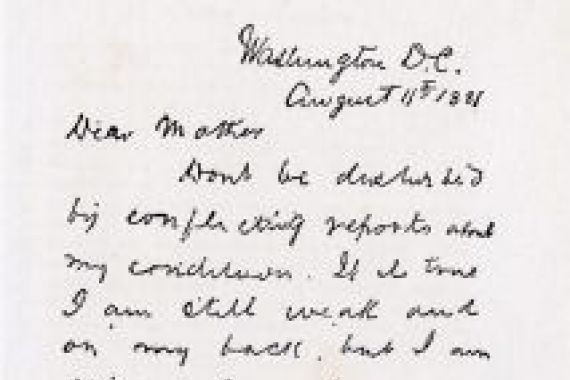 Washington D.C.
August 11th 1881
Dear Mother
Dont be disturbed
by conflicting reports about
my condition. It is true
I am still weak and
on my back, but I am